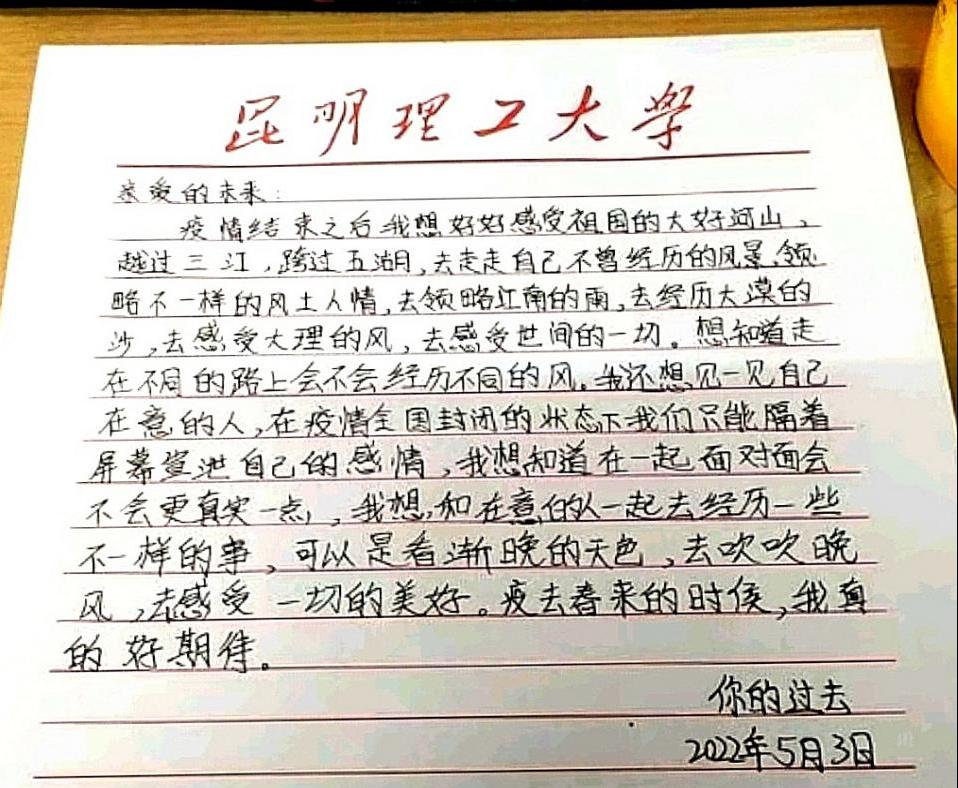 昆明理工大学
亲爱的未来：
疫情结束之后我想好好感受祖国的大好河山，
越过三江，跨过五湖，去走走自己不曾经历的风景，领
略不一样的风土人情，去领略江南的雨，去经历大漠的
沙，去感受大理的风，去感受世间的一切。想知道走
在不同的路上会不会经历不同的风。我还想见一见自己
在意的人，在疫情全国封闭的状态下我们只能隔着
屏幕宣泄自己的感情，我想知道在一起面对面会
不会更真实一点，我想和在意的人一起去经历一些
不一样的事，可以是看渐晚的天色，去吹吹晚
风，去感受一切的美好。疫去春来的时候，我真
的好期待。
你的过去
2022年5月3日